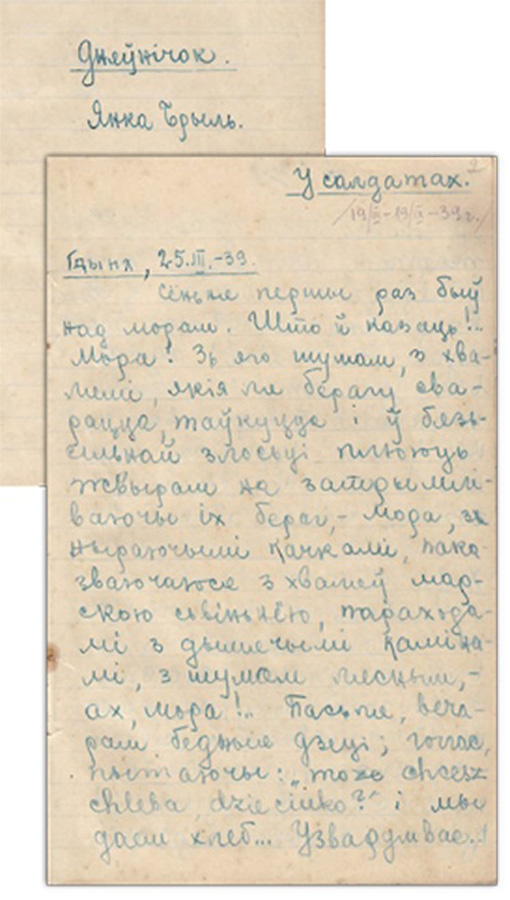 Дняўнічок.
Янка Брыль.
У салдатах.
/19/III-19/IX-39 г./
Гдыня, 25.III.-39.
Сёньня першы раз быў
над морам. Што й казаць!..
Мора! Зь яго шумам, з хва-
лямі, якія ля берагу сва-
рацца, таўкуцца і ў бязь-
сільнай злосьці плююць
жвырам на затрымлі-
ваючы іх бераг,- мора, зь
ныраючымі качкамі, пака-
зваючаюся з хваляў мар-
скою сьвіньнёю, парахода-
мі з дымячымі каміна-
мі, з шумам лясным,-
ах, мора!.. Пасьля, веча-
рам бедныя дзеці; голас,
пытаючы: „może chcesz
chleba dziecinko?" і мы
далі хлеб...